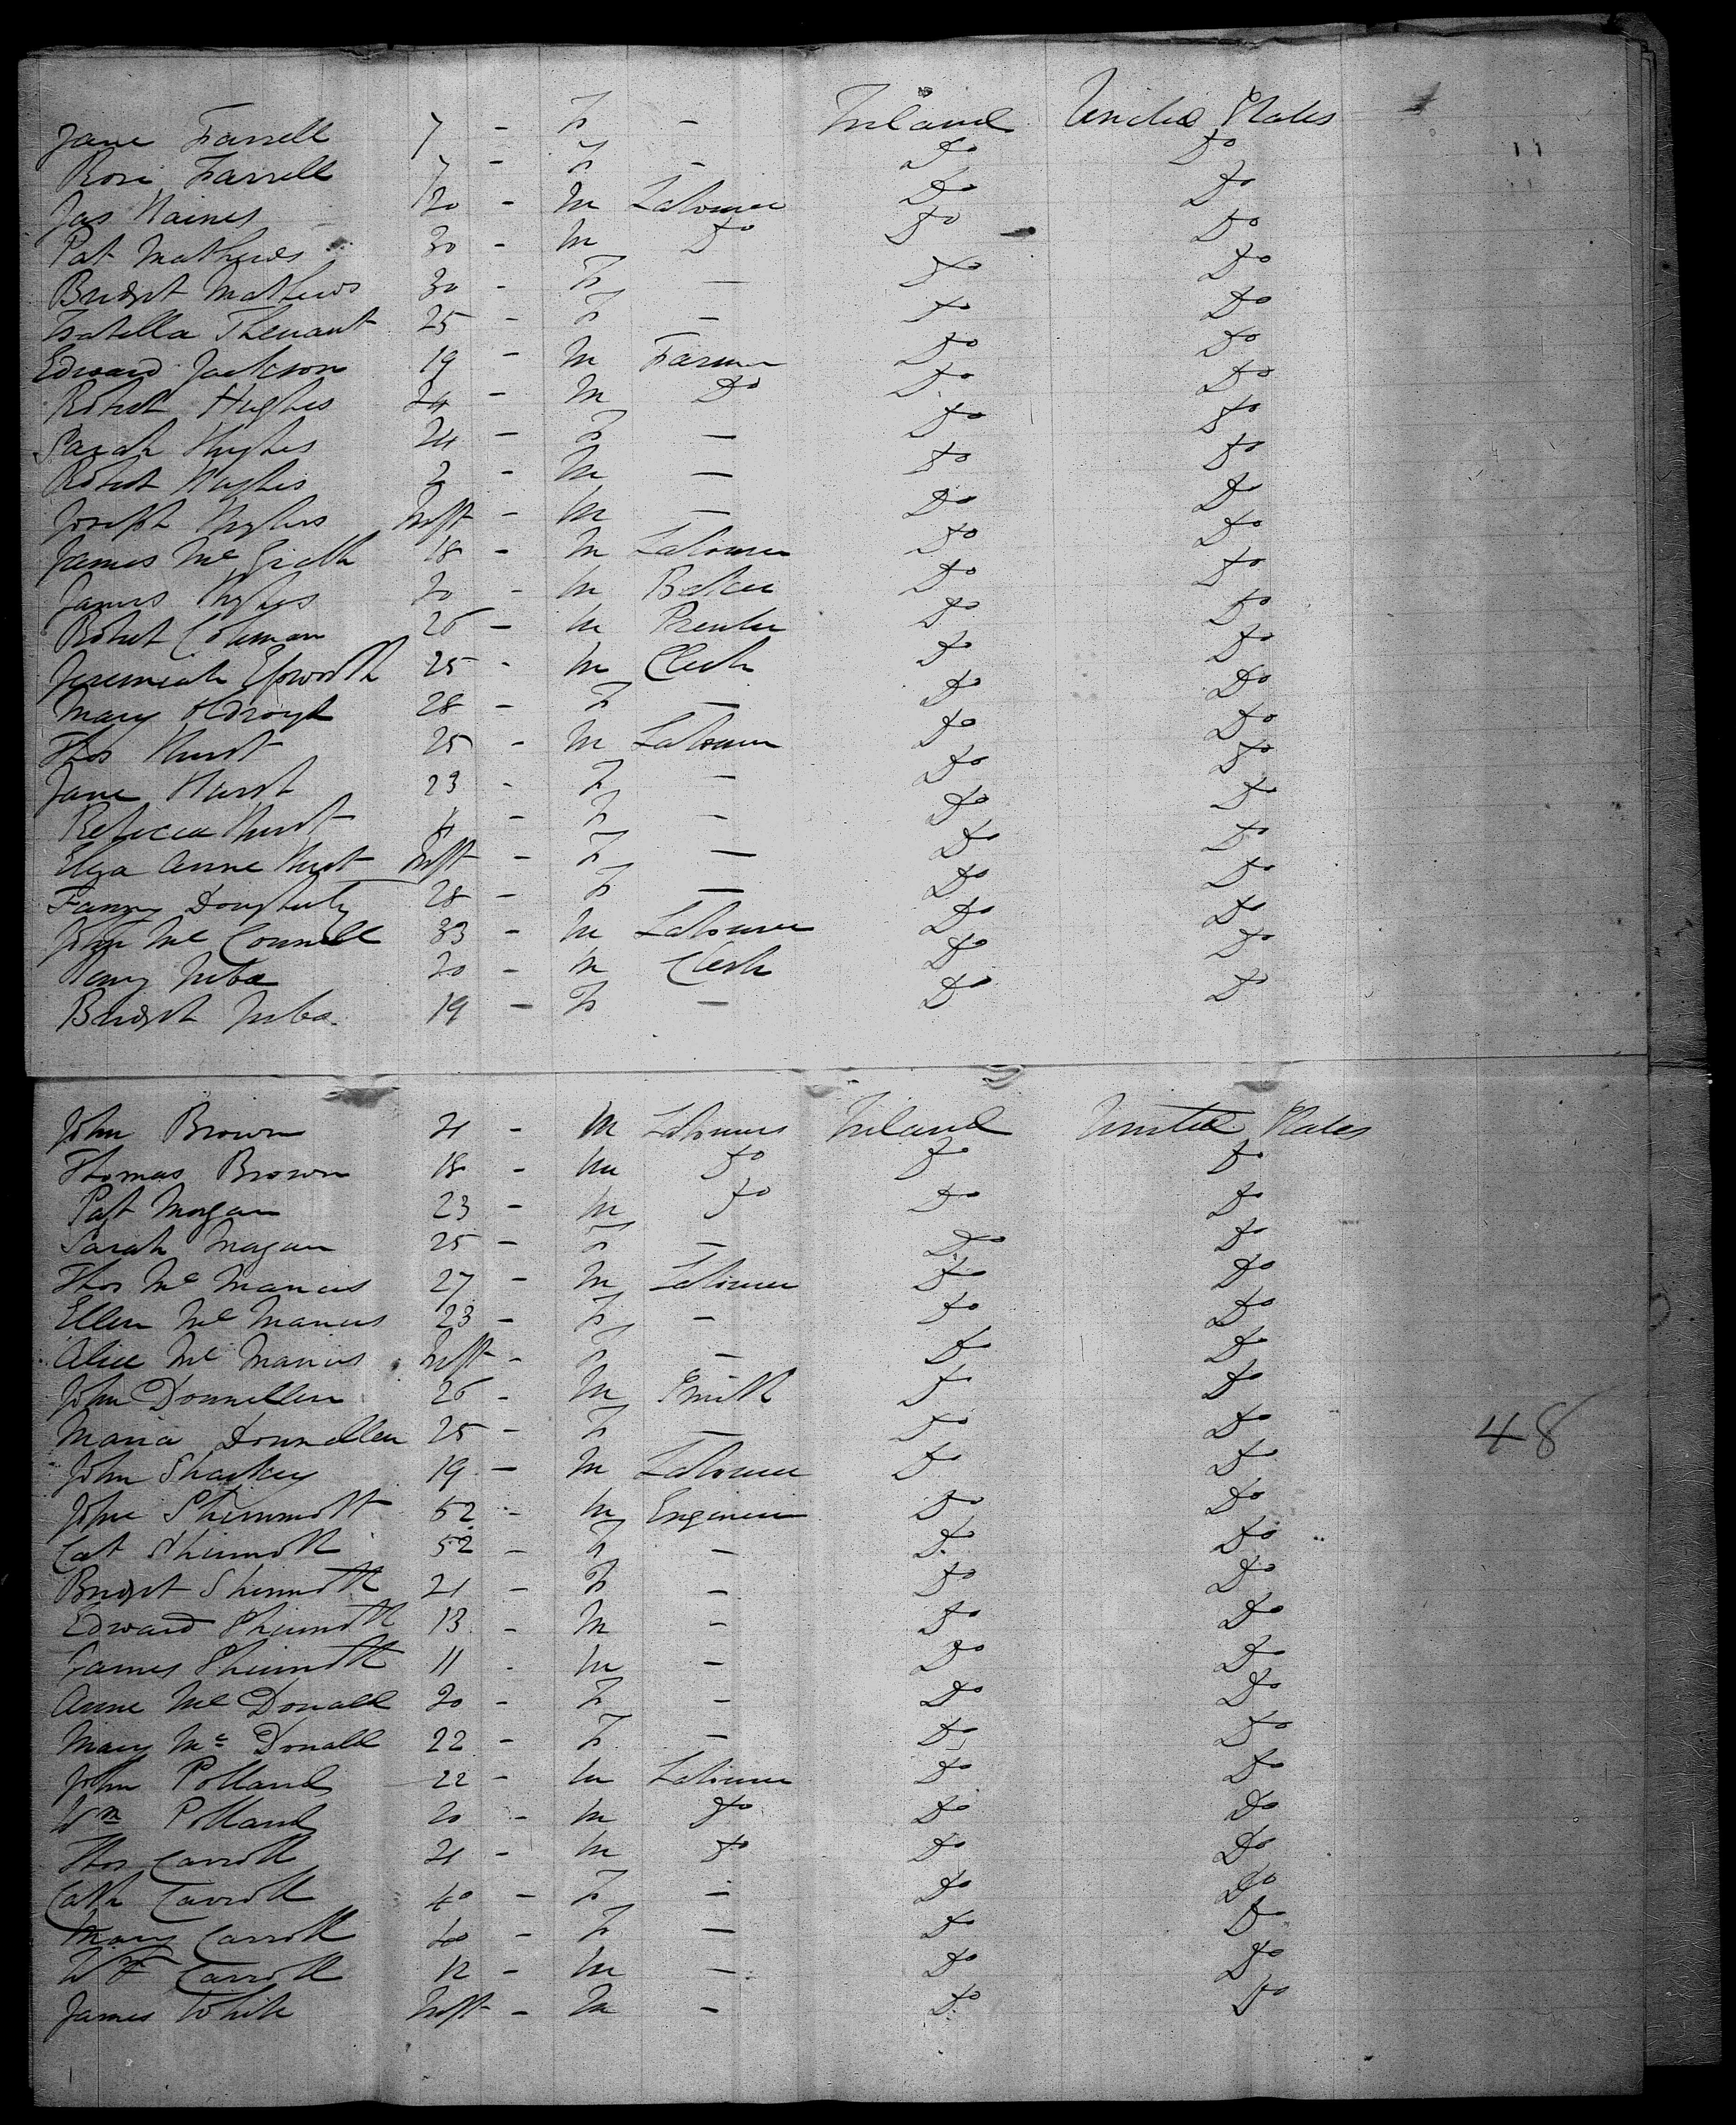 Jane Farrell 7 - F - Ireland United States
Rose Farrell 7 - F - Do Do
Jas Haines 20 - M Labourer Do Do
Pat Mathews 30 - M Do Do Do
Bridget Mathews 30 - F - Do Do
Isabella 25 - F - Do Do
Edward Jackson 19 - M Farmer Do Do
Robert Hughes 24 - M Do Do Do
Sarah Hughes 24 - F - Do Do
Robert Hughes 2 - M - Do Do
Joseph Hughes Inft - M - Do Do
James Mc Grath 18 - M Labourer Do Do
James Hughes 20 - M Baker Do Do
Robert Coleman 26 - M Do Do
Jeremiah Epworth 25 - M Clerk Do Do
Mary Oldroyd 28 - F - Do Do
Thos Hurst 25 - M Labourer Do Do
Jane Hurst 23 - F - Do Do
Rebecca Hurst 4 - F - Do Do
Eliza Anne Hurst Inft - F - Do Do
Fanny Dougherty 28 - F - Do Do
John Mc Connell 33 - M Labourer Do Do
Henry 20 - M Clerk Do Do
Bridget 19 - F - Do Do
John Brown 21 - M Labourer Ireland United States
Thomas Brown 18 - M Do Do Do
Pat Morgan 23 - M Do Do Do
Sarah Magan 25 - F - Do Do
Thos Mc Manus 27 - M Labourer Do Do
Ellen Mc Manus 23 - F - Do Do
Alice Mc Manus Inft - F - Do Do
John Donnellen 26 - M Smith Do Do
48
Maria Donnellen 25 - F - Do Do
John Sharkey 19 - M Labourer Do Do
John 52 - M Engineer Do Do
Cat 52 - F - Do Do
Bridget 21 - F - Do Do
Edward 13 - M - Do Do
James 11 - M - Do Do
Anne Mc Donald 20 - F - Do Do
Mary Mc Donald 22 - F - Do Do
John Pollard 22 - M Labourer Do Do
Wm Pollard 20 - M Do Do Do
Thos Carroll 21 - M Do Do Do
Cath Carroll 40 - F - Do Do
Mary Carroll 40 - F - Do Do
Wm Carroll 12 - M - Do Do
James White Inft - M - Do Do